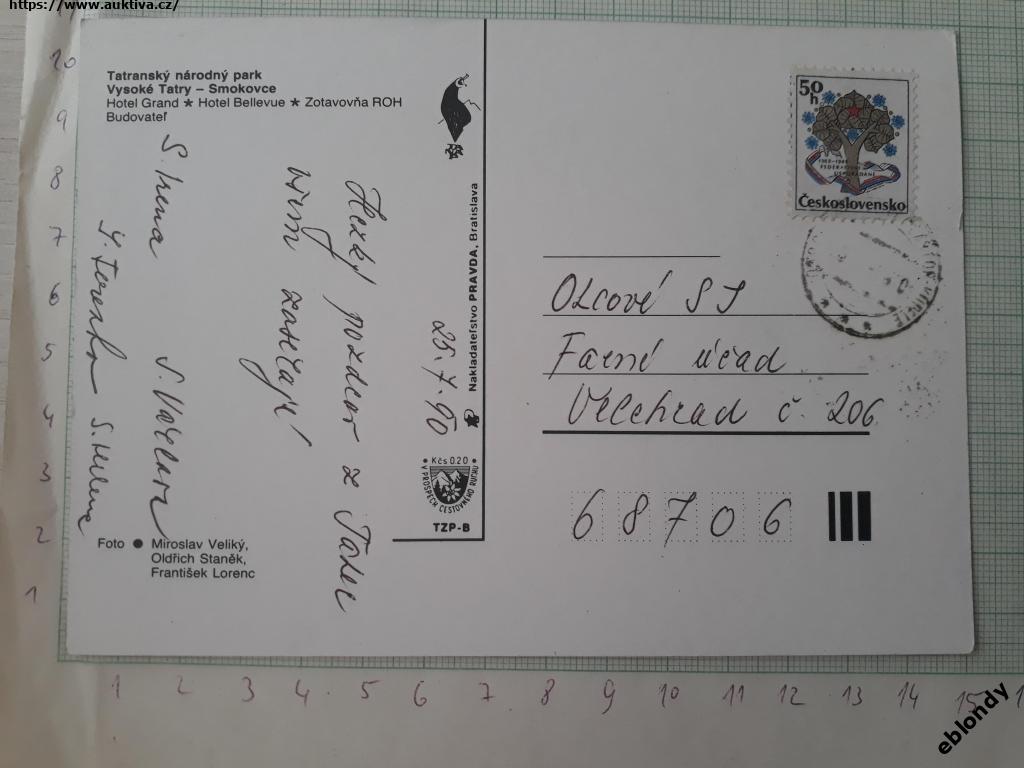 https://www.auktiva.cz/
Tatranský národný park
Vysoké Tatry – Smokovce
Hotel Grand ★ Hotel Bellevue ★ Zotavovňa ROH
Budovateľ
Hezký pozdrav z Tater
Vám
25.7.90
S. Irena
S. Helena
Foto ● Miroslav Veliký,
Oldřich Staněk,
František Lorenc
Nakladateľstvo PRAVDA, Bratislava
Kčs 020
V PROSPECH CESTOVNÉHO RUCHU
TZP-B
50 h
Československo
Otcové SJ
Farní úřad
Velehrad č. 206
68706
10
9
8
7
6
5
4
3
2
1
1 2 3 4 5 6 7 8 9 10 11 12 13 14 15
eblondy